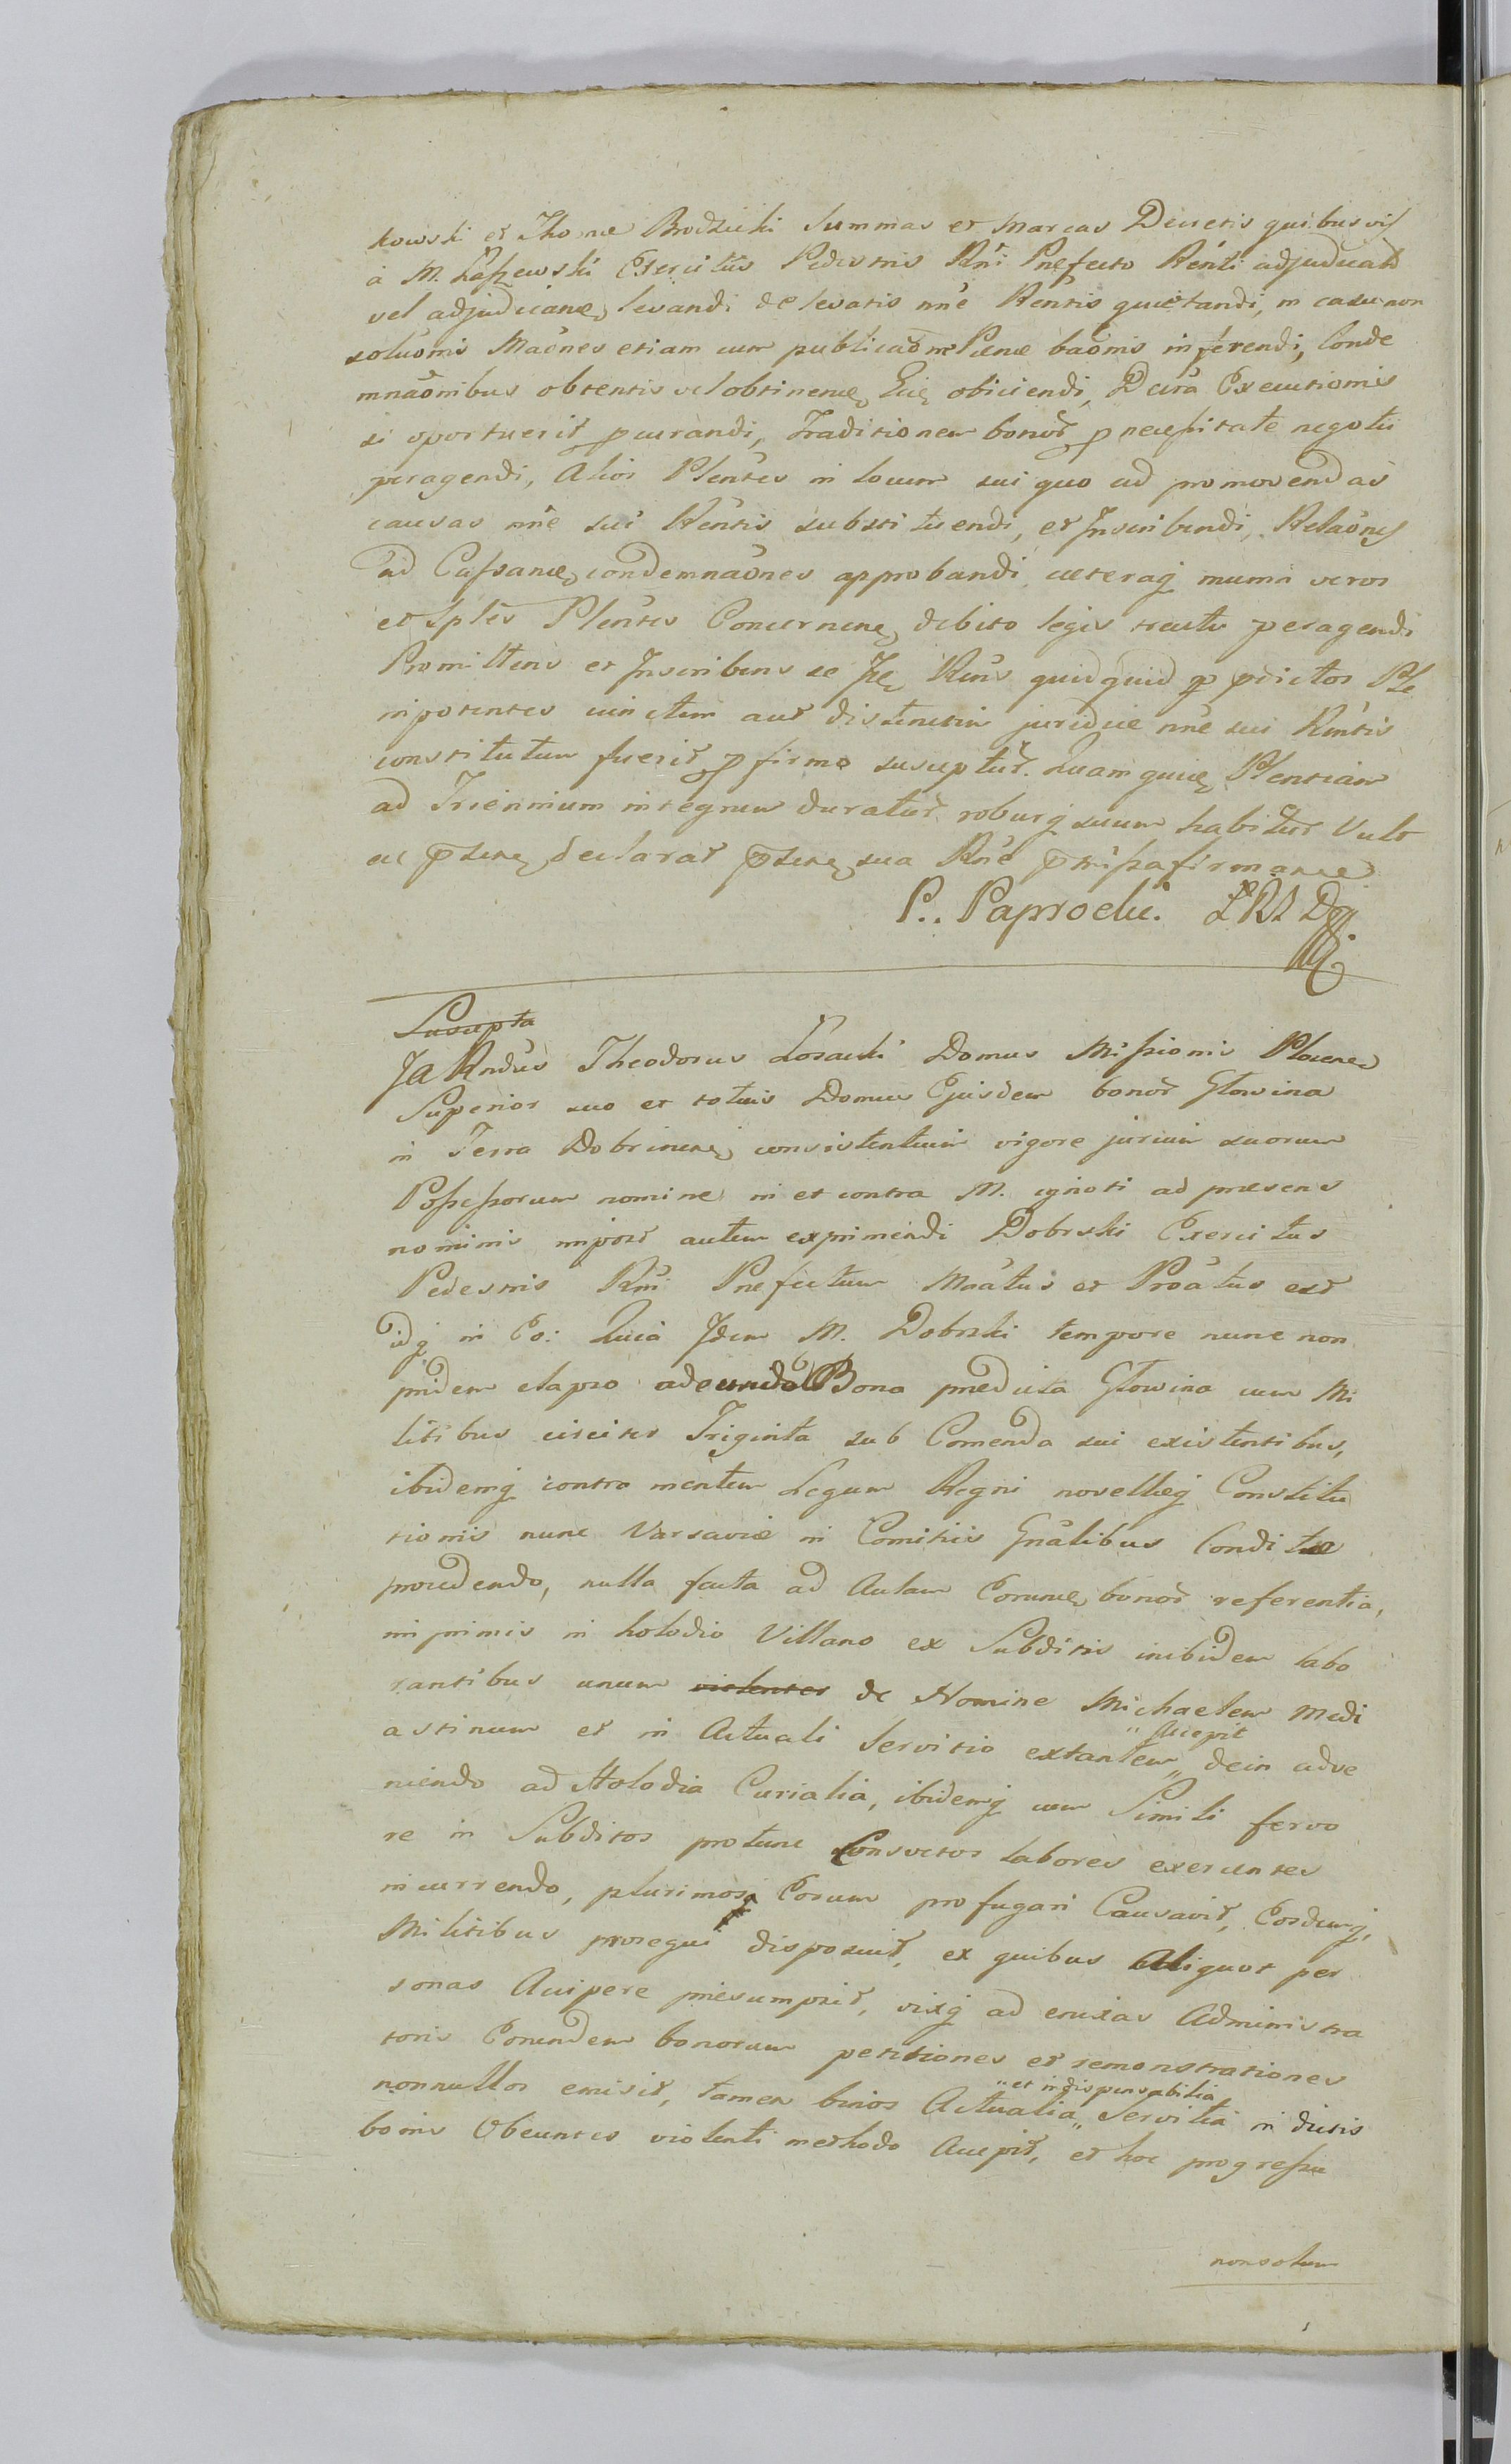 kowski et Thomae Brodzicki Summas et Marcas Decretis quibusvis
a M. Łaszewski Exercitus Pedestris Rni Praefecto Rentti adjudicat
vel adjudicane, levandi de levatis nne Rentis quietandi, in casu non
soluonis Maones etiam cum publicaone Paenae baonis inferendi, Conde
mnaonibus obtentis vel obtinene, Eie, obiiciendi, Decra Executionis
si oportuerit pcurandi, Traditionem bonor p necessitate negotii
peragendi, Alios Plentes in locum sui quo ad promovendas
causas nne sui Rentis substituendi, et Inscribendi, Relaones
ad Cassane, condemnaones approbandi caeteraq munia veros
et Splės Plentes Concernene, debito legis tractu peragendi
Promittens et Inscribens se Ide Rens quidquid p pdictos Ple
nipotentes cunctim aut distinctim juridice nne sui Rentis
constitutum fuerit p firmo suscptur. Quam quidem Plentiam
ad Triennium integrum duratur, roburq suum habitur Vult
ac psene, declarat psene, sua Rne pmissa firmante
P.. Paprocki.
Suscepta
JA Rndus Theodorus Losacki Domus Missionis Plocene
Superior suo et totius Domus Ejusdem bonor Głowina
in Terra Dobrinene, consistentium vigore jurium suorum
Possessorum nomine in et contra M. ignoti ad praesens
nominis impost autem exprimendi Dobrski Exercitus
Pedestris Rni Praefectum Maatus et Proatus est
idq in Eo: Quia Idem M. Dobrski tempore nunc non
pridem elapso adeundo Bona praedicta Głowina cum Mi
litibus circiter Triginta sub Comenda sui existentibus,
ibidemq contra mentem Legum Regni novellaeq Constitu
tionis nunc Varsaviae in Comitiis Gnalibus Conditae
procedendo, nulla facta ad Aulam Eorunde, bonor referentia,
imprimis in holodio Villano ex Subditis inibidem labo
rantibus unum violenter de Nomine Michaelem Medi
astinum et in Actuali Servitio extantem „ Accepit dein adve
niendo ad Holodia Curialia, ibidemq cum Simili fervo
re in Subditos protunc Consvetos labores exercentes
incurrendo, plurimos Eorum profugari Causavit, Eosdemq,
Militibus prosequi disposuit, ex quibus Aliquot per
sonas Accipere praesumpsit, vixq ad enixas Administra
toris Eorundem bonorum petitiones et remonstrationes
nonnullos emisit, tamen binos Actualia „ et indispensabilia Servitia in dictis
bonis Obeuntes violenti methodo Accepit, et hoc progressu
nonsolum